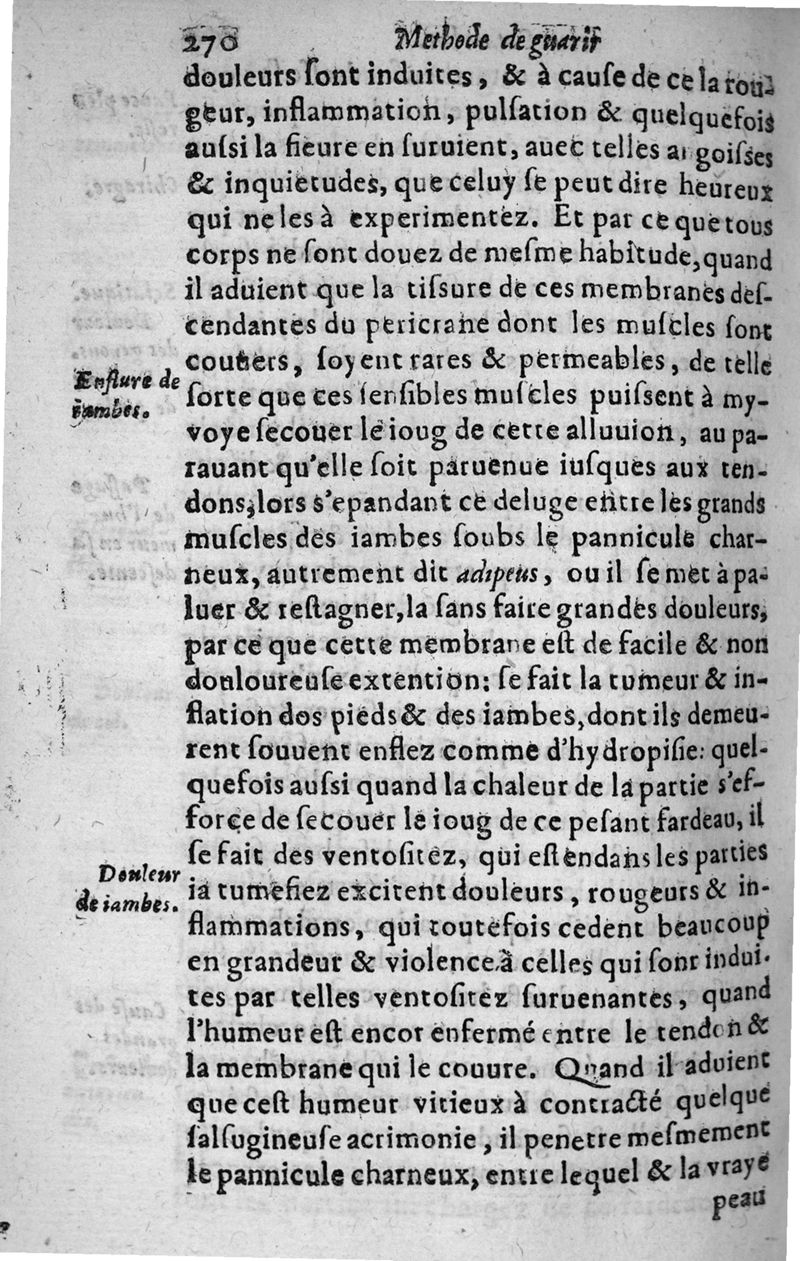 270 Methode de guarir
douleurs ſont induites, & à cauſe de ce la rou-
geur, inflammation, pulſation & quelquefois
auſsi la fieure en ſuruient, auec telles angoiſses
& inquietudes, que celuy ſe peut dire heureux
qui ne les à experimentez. Et par ce que tous
corps ne ſont douez de meſme habitude, quand
il aduient que la tiſsure de ces membranes deſ-
cendantes du pericrane dont les muſcles ſont
couuers, ſoyent rares & permeables, de telle
Enflure de
iambes.
ſorte que ces ſenſibles muſcles puiſsent à my-
voye ſecouer le ioug de cette alluuion, au pa-
rauant qu'elle ſoit paruenue iuſques aux ten-
dons, lors s'epandant ce deluge entre les grands
muſcles des iambes ſoubs le pannicule char-
neux, autrement dit adipeus, ou il ſe met à pa-
luer & reſtagner, la ſans faire grandes douleurs,
par ce que cette membrane eſt de facile & non
douloureuſe extention: ſe fait la tumeur & in-
flation dos pieds & des iambes, dont ils demeu-
rent ſouuent enflez comme d'hydropiſie: quel-
quefois auſsi quand la chaleur de la partie s'ef-
force de ſecouer le ioug de ce peſant fardeau, il
ſe fait des ventoſitez, qui eſtendans les parties
Douleur
de iambes.
ia tumefiez excitent douleurs, rougeurs & in-
flammations, qui toutefois cedent beaucoup
en grandeur & violence à celles qui ſont indui-
tes par telles ventoſitez ſuruenantes, quand
l'humeur eſt encor enfermé entre le tendon &
la membrane qui le couure. Quand il aduient
que ceſt humeur vitieux à contracté quelque
ſalſugineuſe acrimonie, il penetre meſmement
le pannicule charneux, entre lequel & la vraye
peau